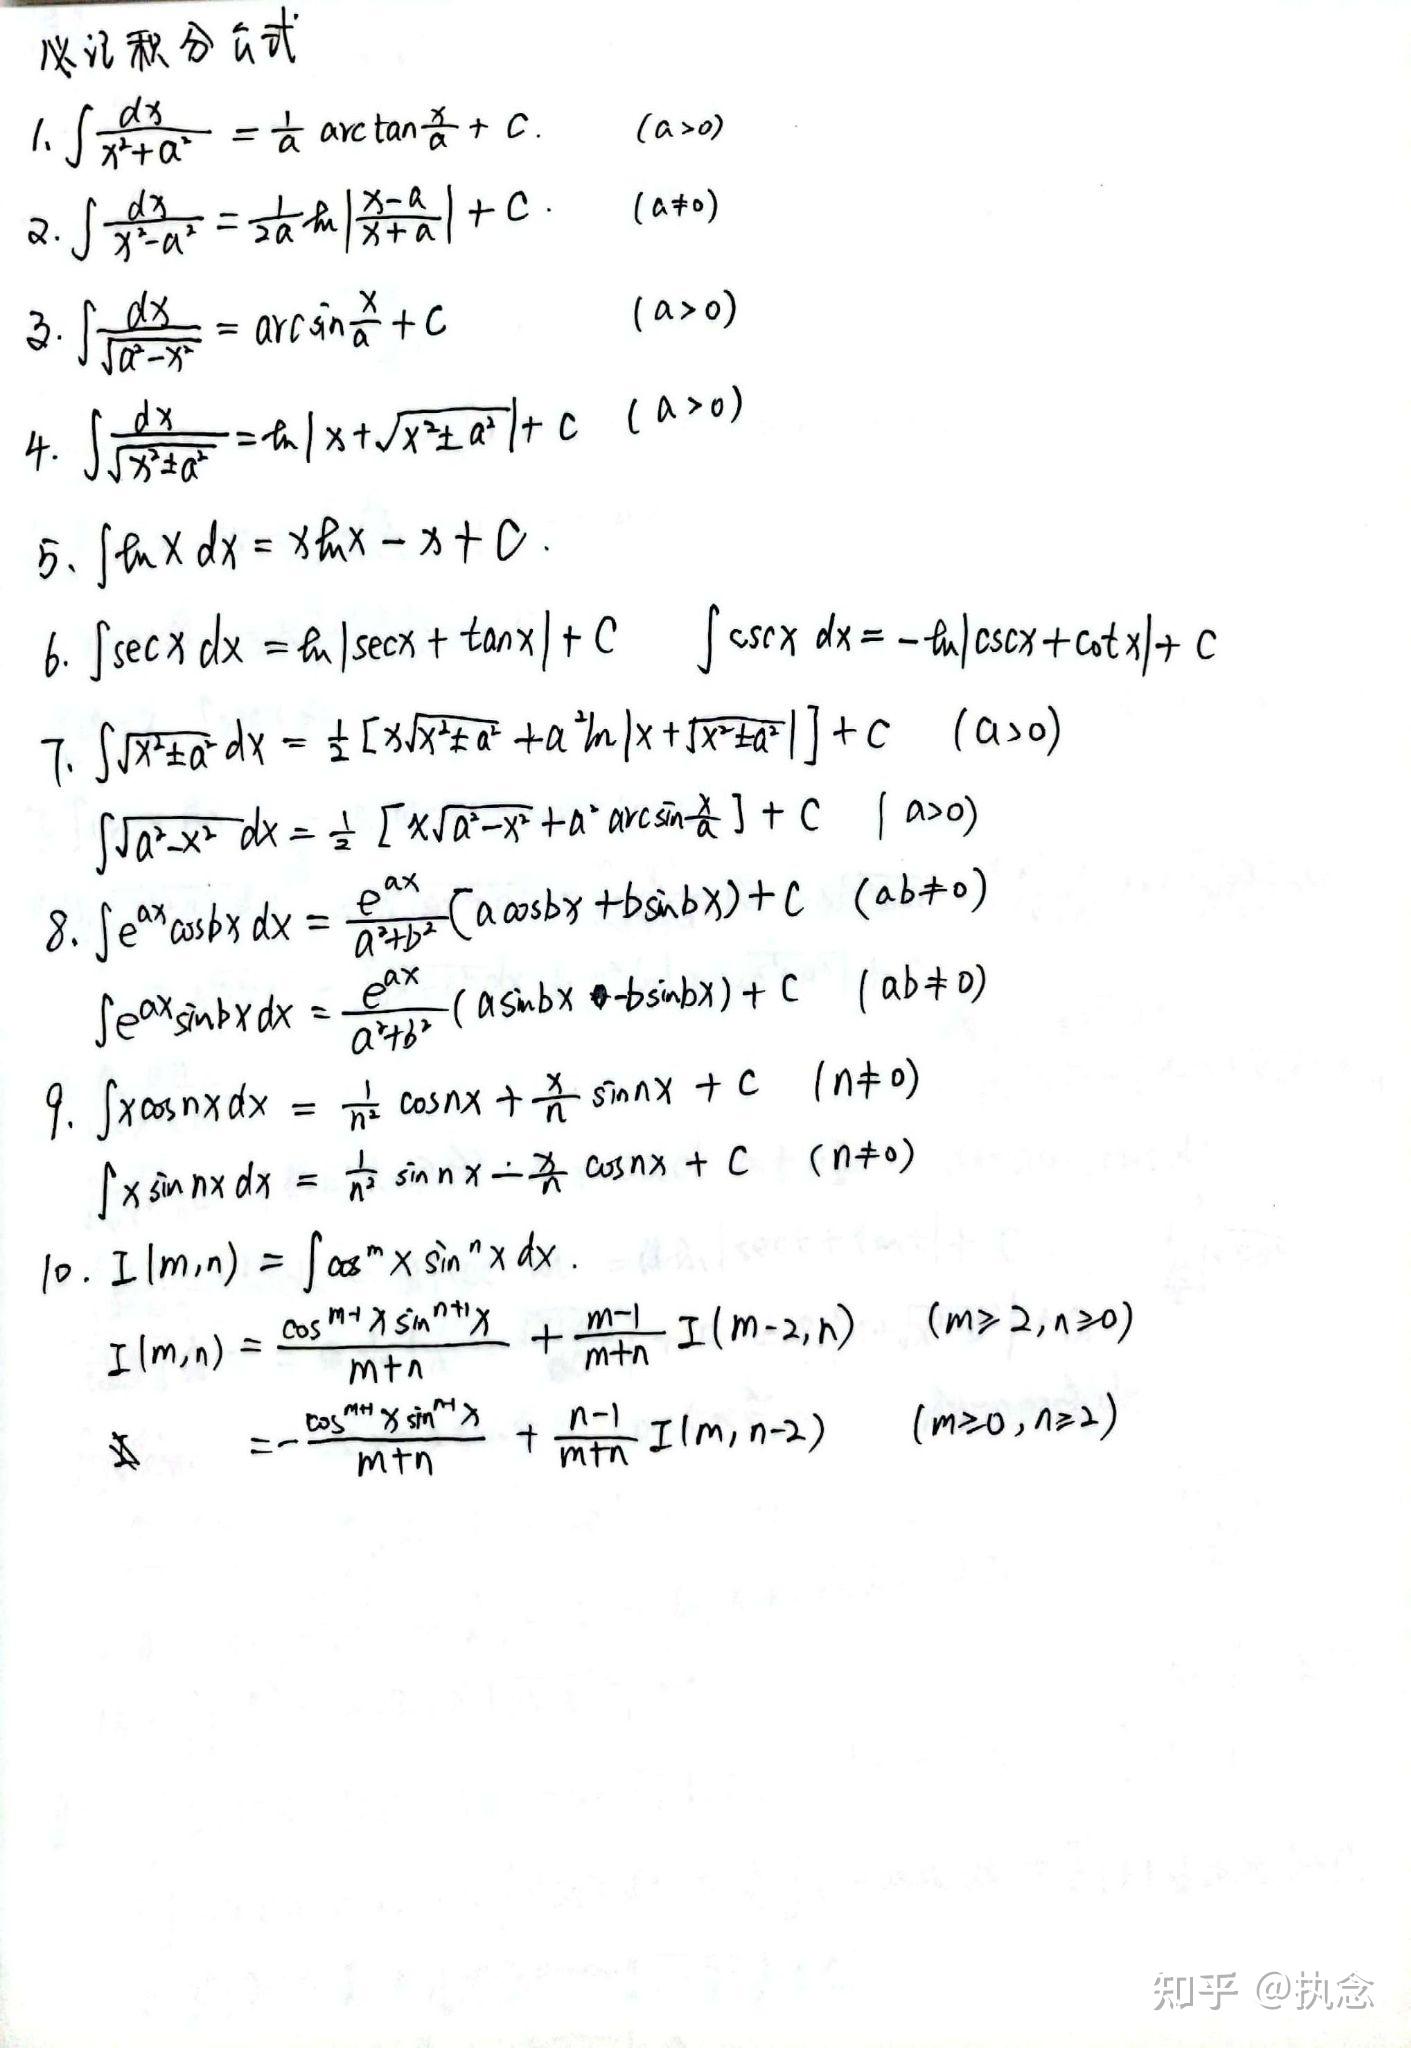 必记积分公式
1. ∫ dx/(x²+a²) = 1/a arctan x/a + C. (a>0)
2. ∫ dx/(x²-a²) = 1/2a ln|(x-a)/(x+a)| + C. (a≠0)
3. ∫ dx/√(a²-x²) = arcsin x/a + C (a>0)
4. ∫ dx/√(x²±a²) = ln|x+√(x²±a²)| + C (a>0)
5. ∫ln x dx = xlnx - x + C.
6. ∫secx dx = ln|secx + tanx| + C ∫cscx dx = -ln|cscx+cotx| + C
7. ∫√(x²±a²) dx = 1/2 [x√(x²±a²) + a²ln|x+√(x²±a²)|] + C (a>0)
∫√(a²-x²) dx = 1/2 [x√(a²-x²) + a² arcsin x/a] + C (a>0)
8. ∫e^(ax) cosbx dx = e^(ax)/(a²+b²) (acosbx + bsinbx) + C (ab≠0)
∫e^(ax) sinbx dx = e^(ax)/(a²+b²) (asinbx -bsinbx) + C (ab≠0)
9. ∫xcosnxdx = 1/n² cosnx + x/n sinnx + C (n≠0)
∫x sin nx dx = 1/n² sinnx - x/n cosnx + C (n≠0)
10. I(m,n) = ∫cos^m x sin^n x dx.
I(m,n) = cos^(m-1) x sin^(n+1) x/(m+n) + (m-1)/(m+n) I(m-2,n) (m≥2,n≥0)
= - cos^(m+1) x sin^(n-1) x/(m+n) + (n-1)/(m+n) I(m,n-2) (m≥0,n≥2)
知乎 @执念